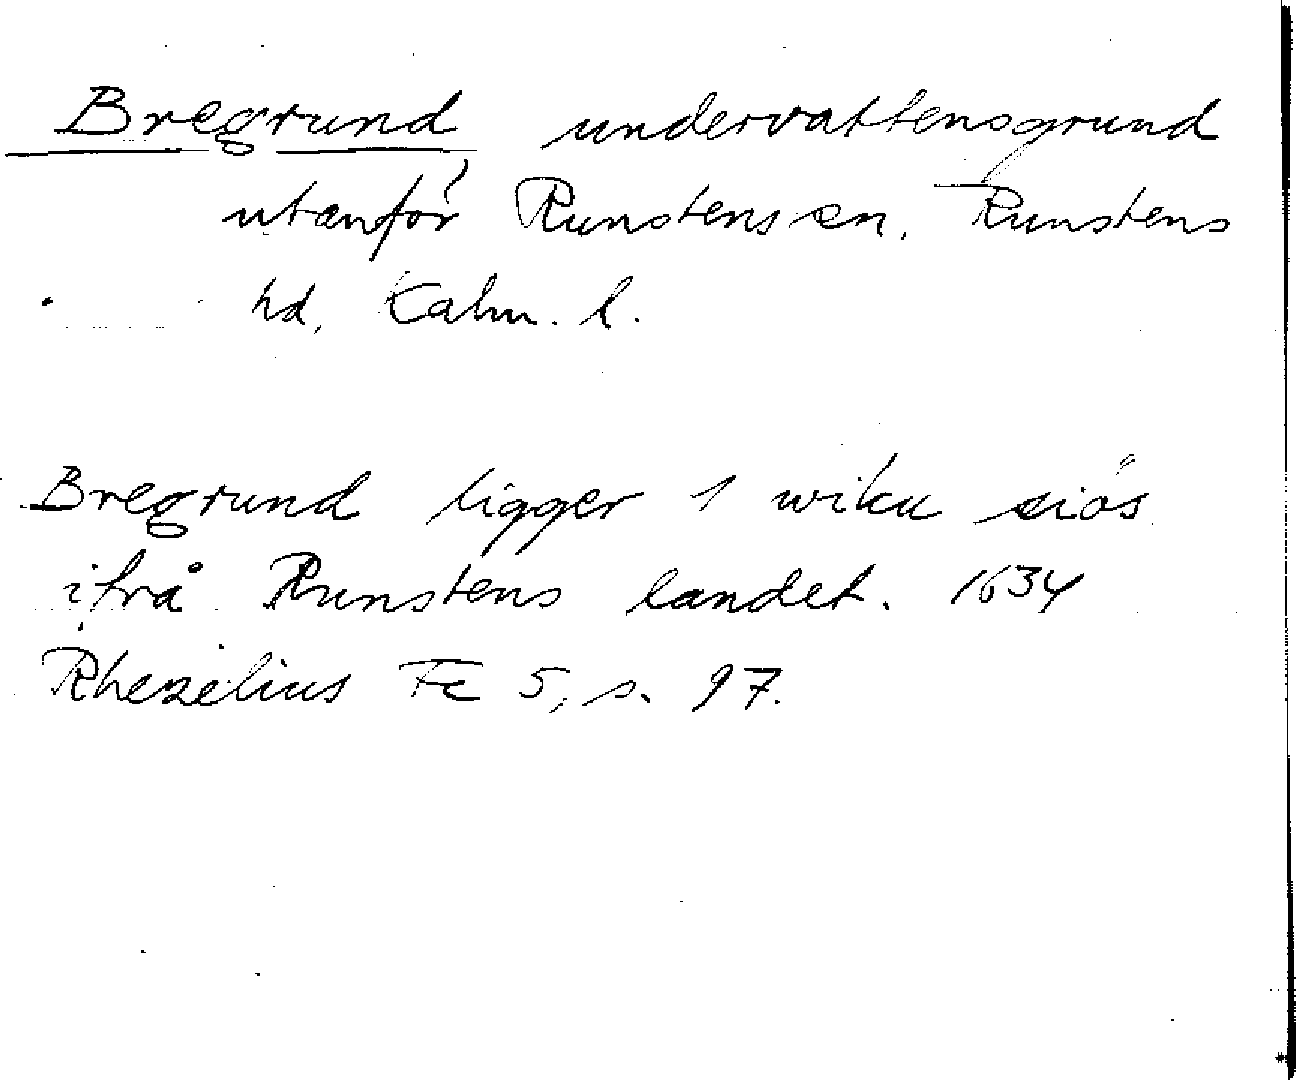 Bregrund, undervattensgrund
utanför Runstens sn, Runstens
hd, Kalm. l.
Bregrund ligger 1 wiku siös
ifrå Runstens landet. 1634
Rhezelius Fc 5, s. 97.